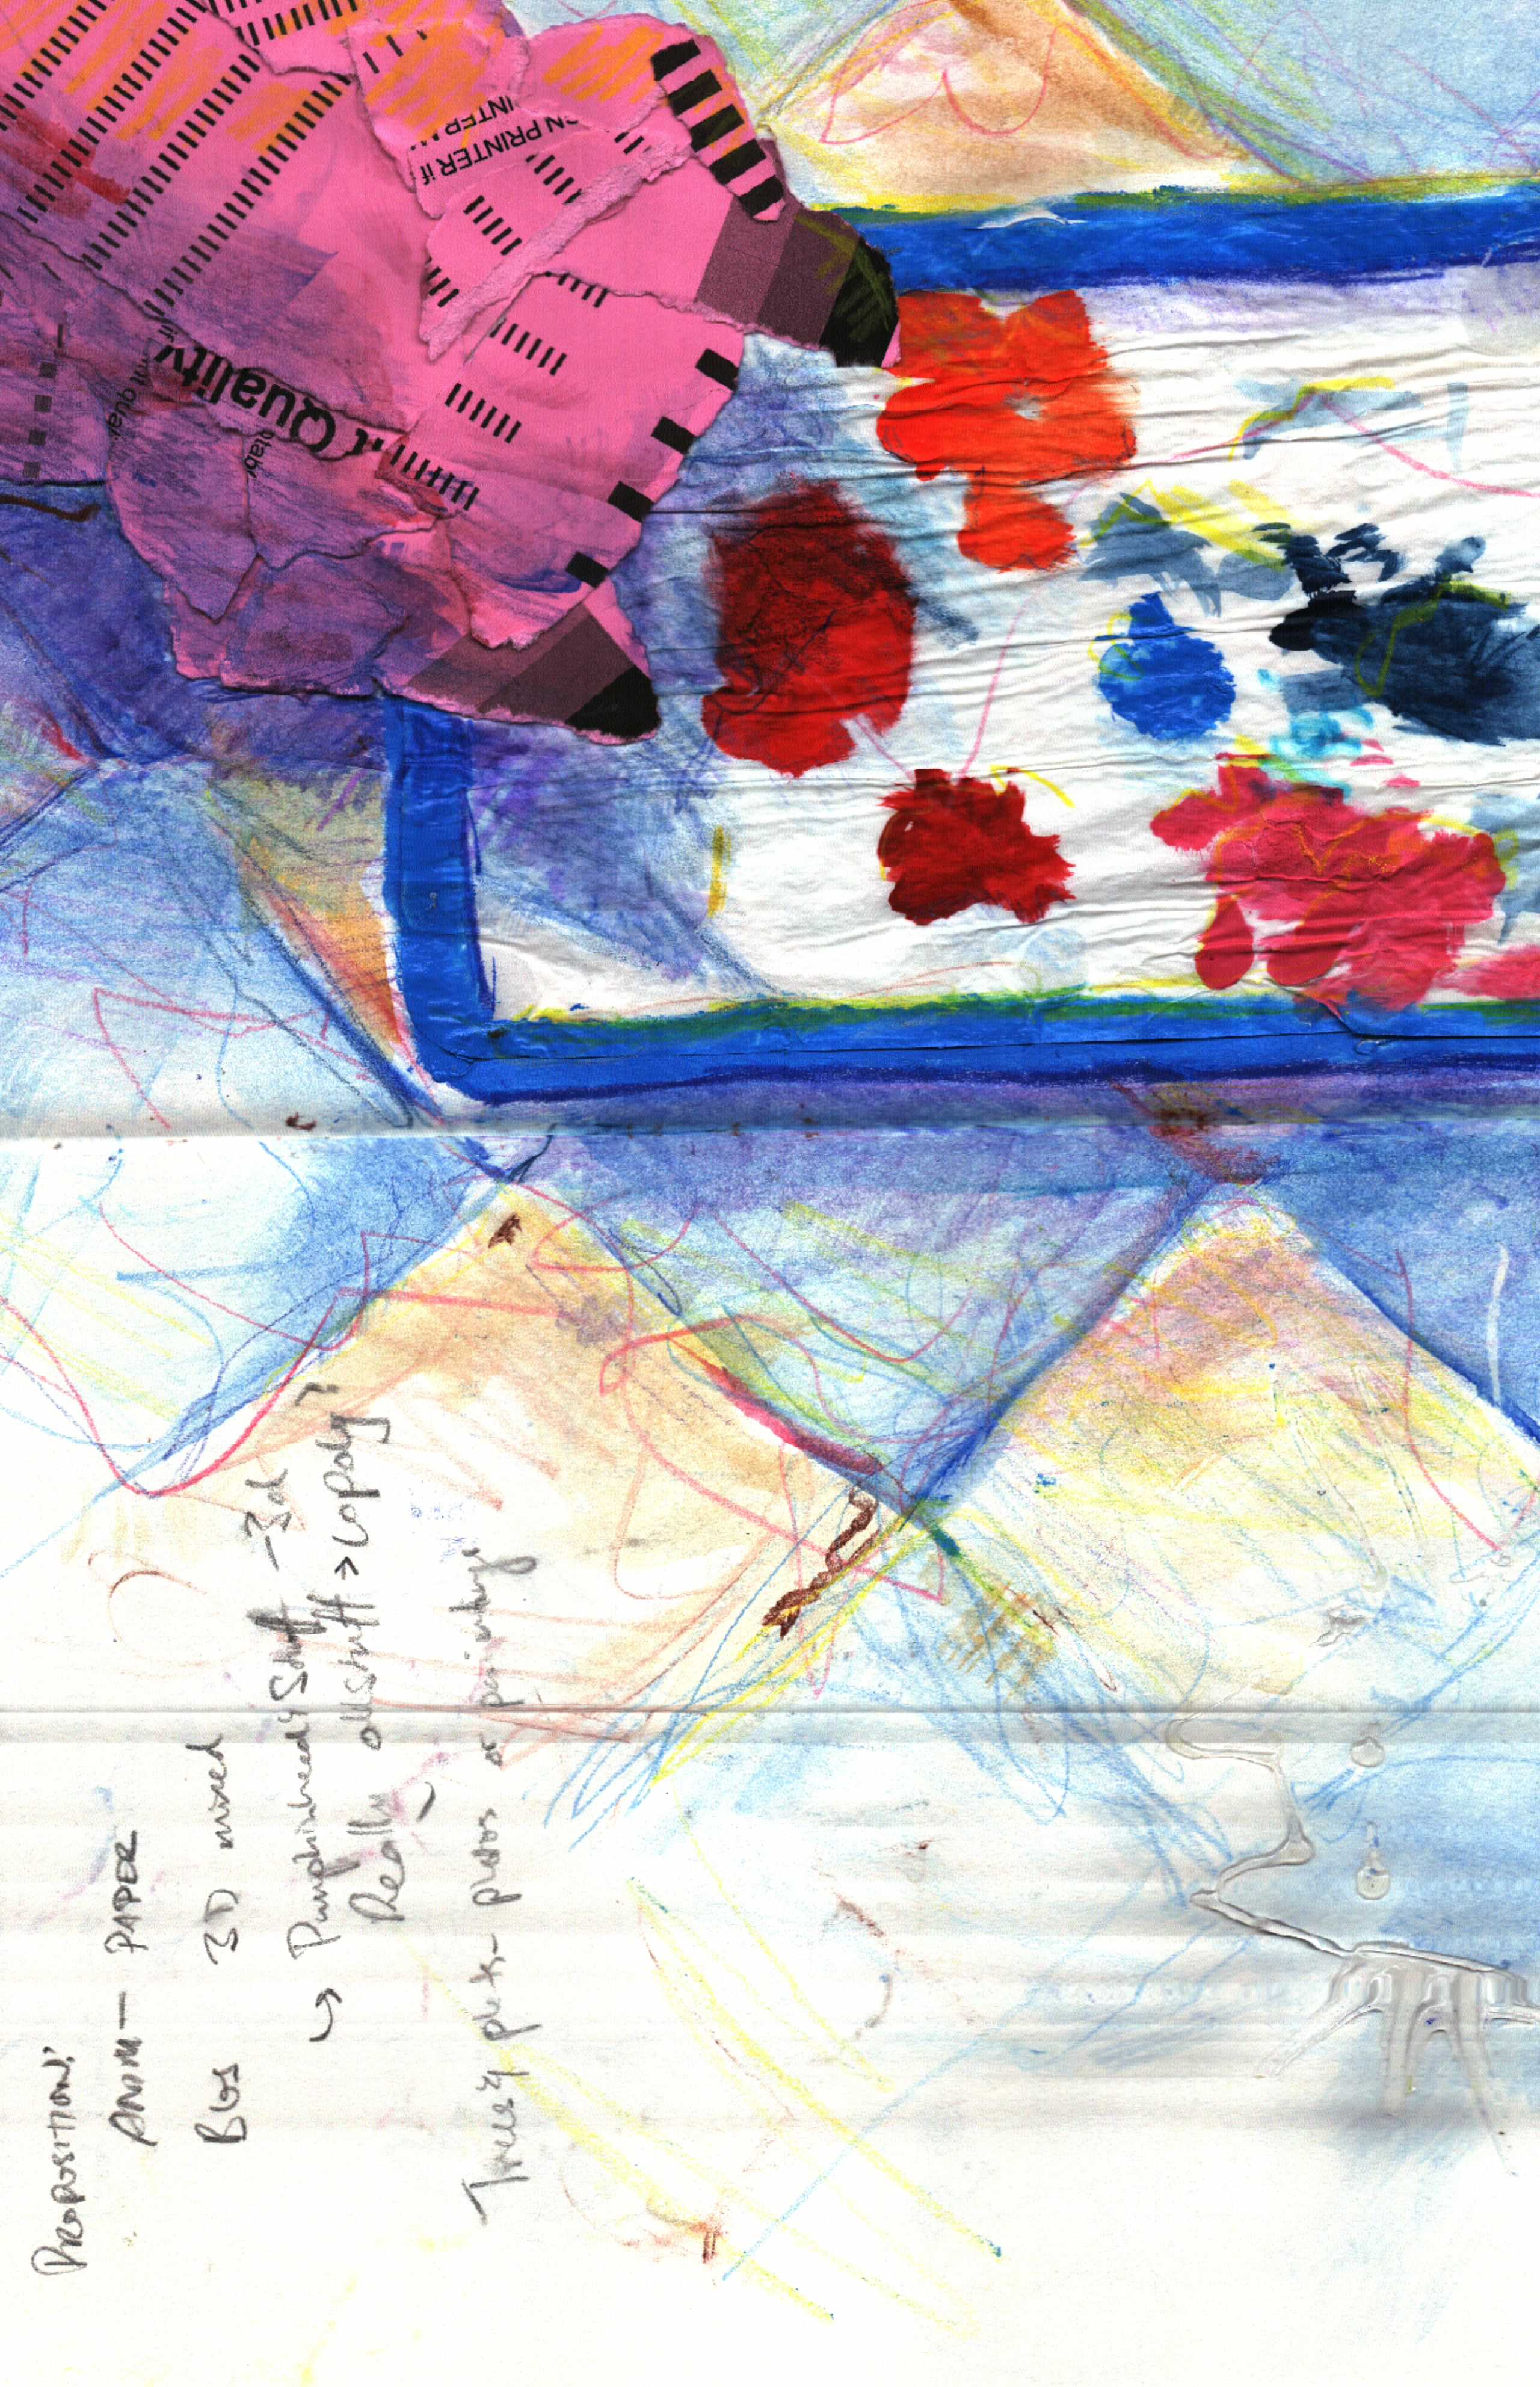 PROPOSITION:
ANIM — PAPER
BGs 3D mixed
↳ Pumpkinhead's Stuff - 3d
Really old stuff → LoPoly?
Trees & plants - photos or paintings
Quality
N PRINTER if
INTER